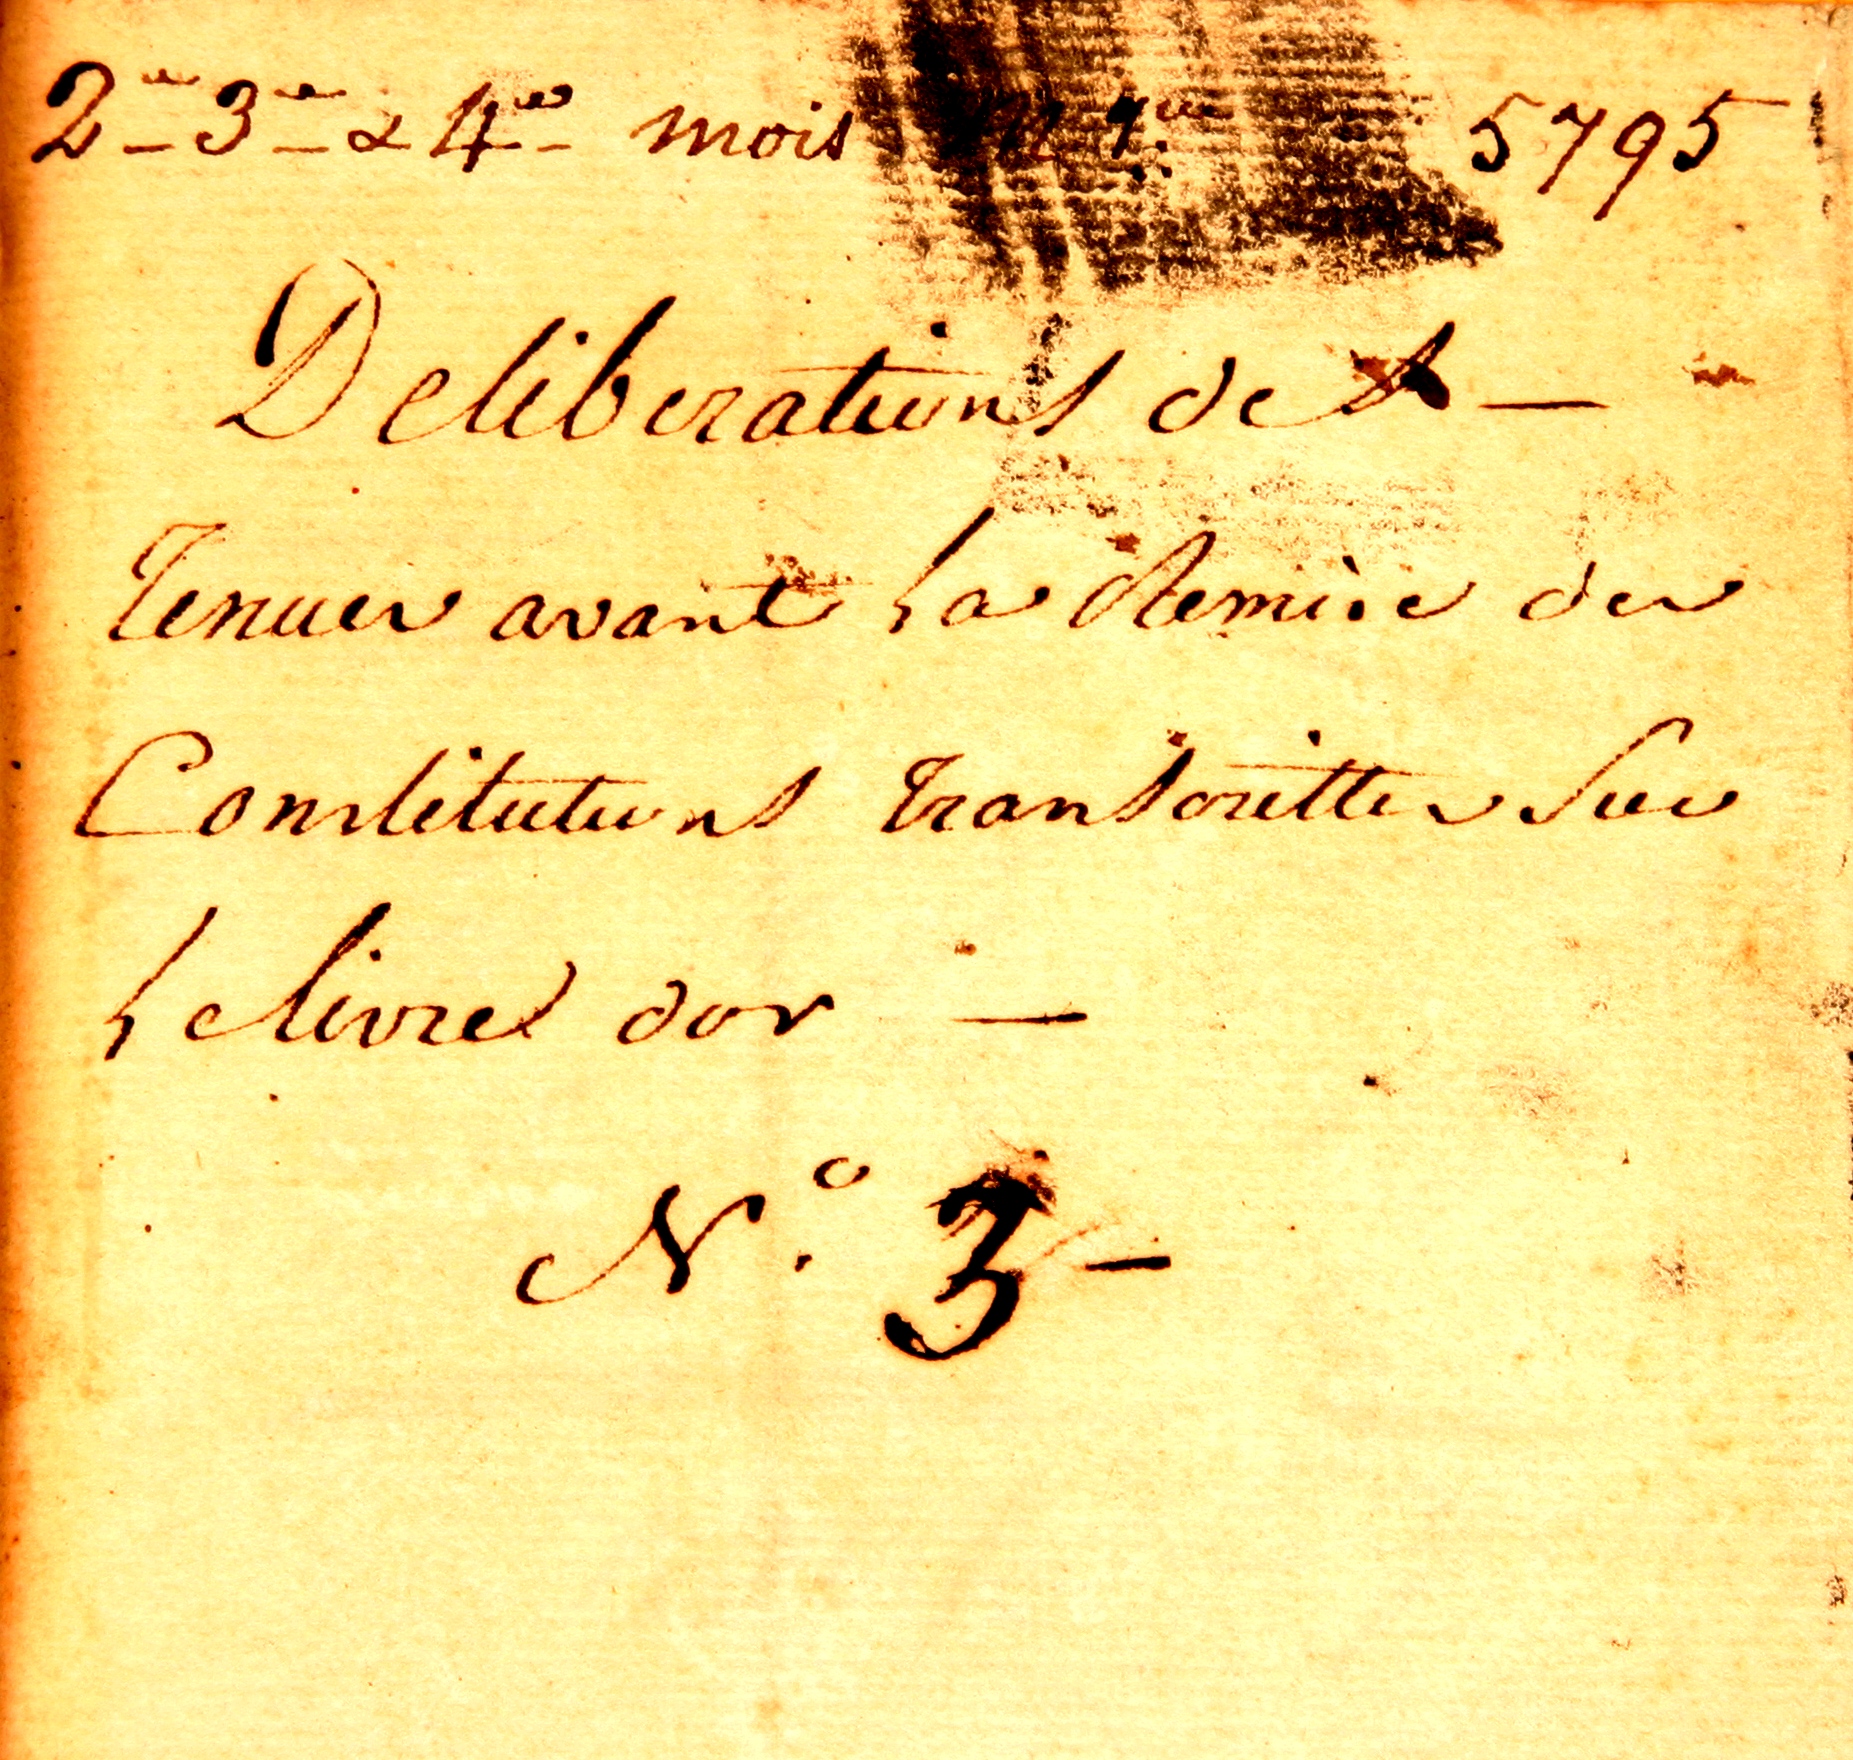 2me 3me & 4me mois 5795
Deliberations des —
Tenues avant La Remise des
Constitutions transcrittes Sur
Le livre dor —
N.o 3 —